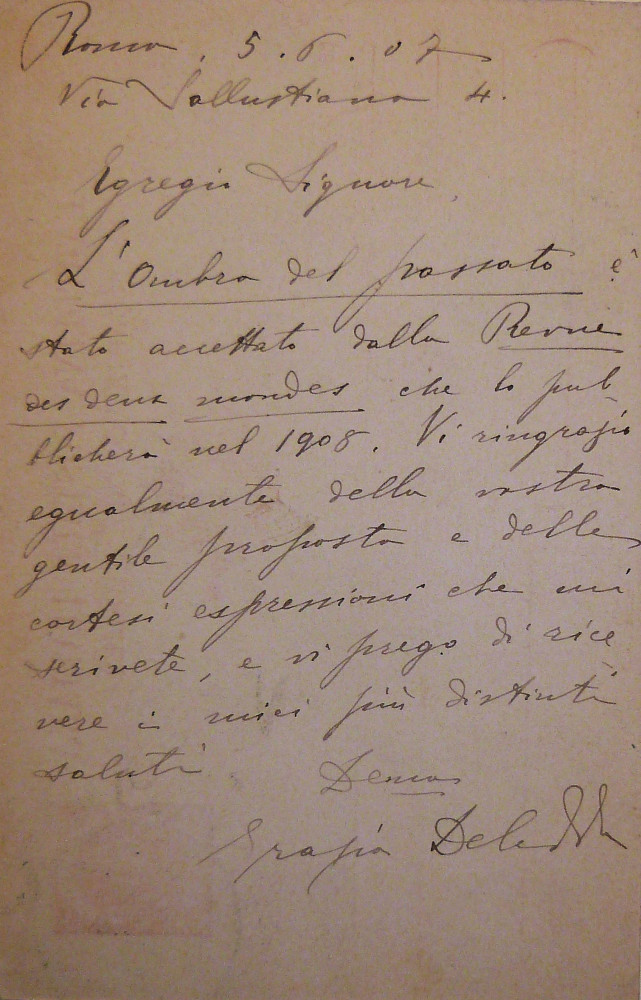 Roma, 5.6.07
Via Sallustiana 4.
Egregio Signore,
L'Ombra del passato è
stato accettato dalla Revue
des deux mondes che lo pub
blicherà nel 1908. Vi ringrazio
egualmente della vostra
gentile proposta e delle
cortesi espressioni che mi
scrivete, e vi prego di rice
vere i miei più distinti
saluti
Devma
Grazia Deledda